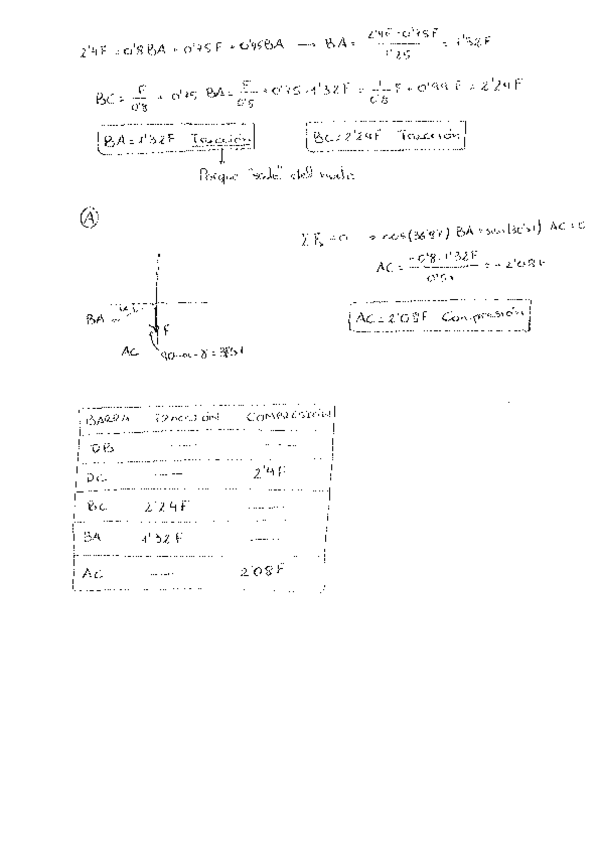 2'4F = 0'8BA + 0'75F + 0'45BA → BA = (2'4F - 0'75F)/1'25 = 1'32F
BC = F/0'8 + 0'75 BA = F/0'8 + 0'75 · 1'32F = 1/0'8 F + 0'99 F = 2'24F
BA = 1'32F Tracción BC = 2'24F Tracción
Porque "sale" del nudo
A
ΣF = 0 → cos(36'87) BA + sen( ) AC = 0
AC = -0'8·1'32F / = -2'08F
BA
F
AC = 2'08F Compresión
AC 90-α-γ =
BARRA TRACCIÓN COMPRESIÓN
DB ------ ------
DC ------ 2'4F
BC 2'24F ------
BA 1'32F ------
AC ------ 2'08F